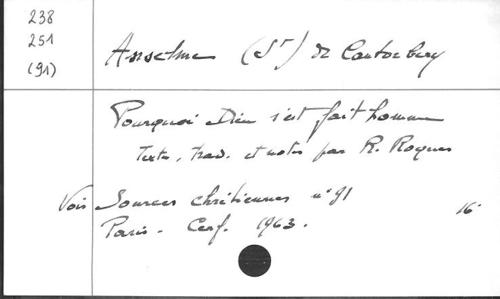 238
251
(91)
Anselme (St) de Cantorbery
Pourquoi Dieu s'est fait homme
Texte, trad. et notes par R. Roques
Voir Sources chrétiennes n° 91
16°
Paris. Cerf. 1963.